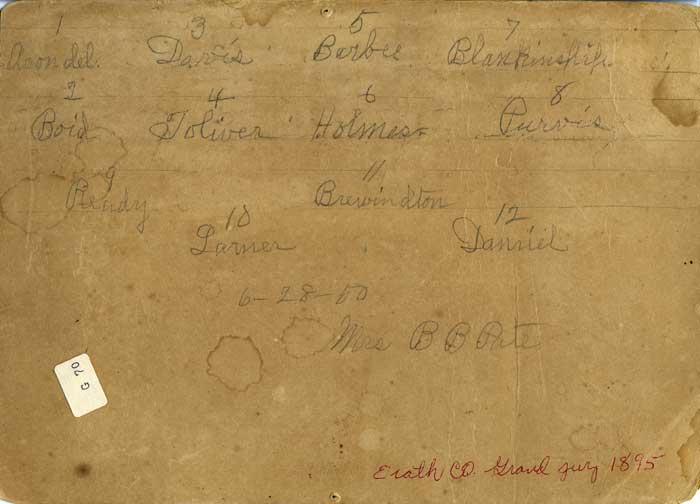 1 3 5 7
Arondel. Davis Barbee Blankinship.
2 4 6 8
Boid Toliver Holmes Purvis
9 11
Ready Brewindton
10 12
Larner Danniel
6-28-50
Mrs B B Pate
G 70
Erath CO. Grand jury 1895